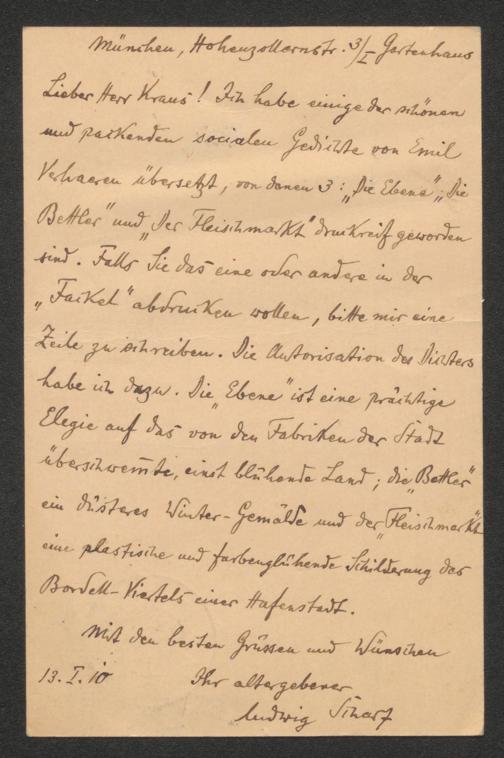 München, Hohenzollernstr. 3/I Gartenhaus
Lieber Herr Kraus! Ich habe einige der schönen
und packenden socialen Gedichte von Emil
Verhaeren übersetzt, von denen 3: „Die Ebene“, „Die
Bettler“ und „Der Fleischmarkt“ druckreif geworden
sind. Falls Sie das eine oder andere in der
„Fackel“ abdrucken wollen, bitte mir eine
Zeile zu schreiben. Die Autorisation des Dichters
habe ich dazu. Die „Ebene“ ist eine prächtige
Elegie auf das von den Fabriken der Stadt
überschwemmte, einst blühende Land; die „Bettler“
ein düsteres Winter-Gemälde und der „Fleischmarkt“
eine plastische und farbenglühende Schilderung des
Bordell-Viertels einer Hafenstadt.
Mit den besten Grüssen und Wünschen
13. I. 10 Ihr altergebener
Ludwig Scharf